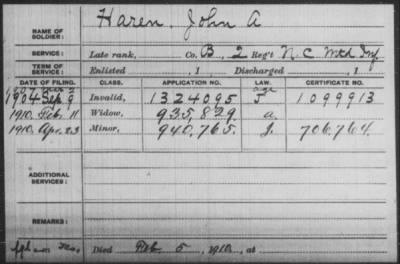 NAME OF SOLDIER: Haren, John A
SERVICE: Late rank, Co. B, 2 Reg't N.C. Mtd Inf
TERM OF SERVICE: Enlisted , 1 Discharged , 1
DATE OF FILING. CLASS. APPLICATION NO. LAW. CERTIFICATE NO.
1907
age
1904 Sep 9 Invalid, 1324095 1099913
1910, Feb. 11 Widow, 935,829. a.
1910, Apr. 23 Minor, 940,765. J. 706,764.
ADDITIONAL SERVICES:
REMARKS:
Died Feb. 5, 1910, at